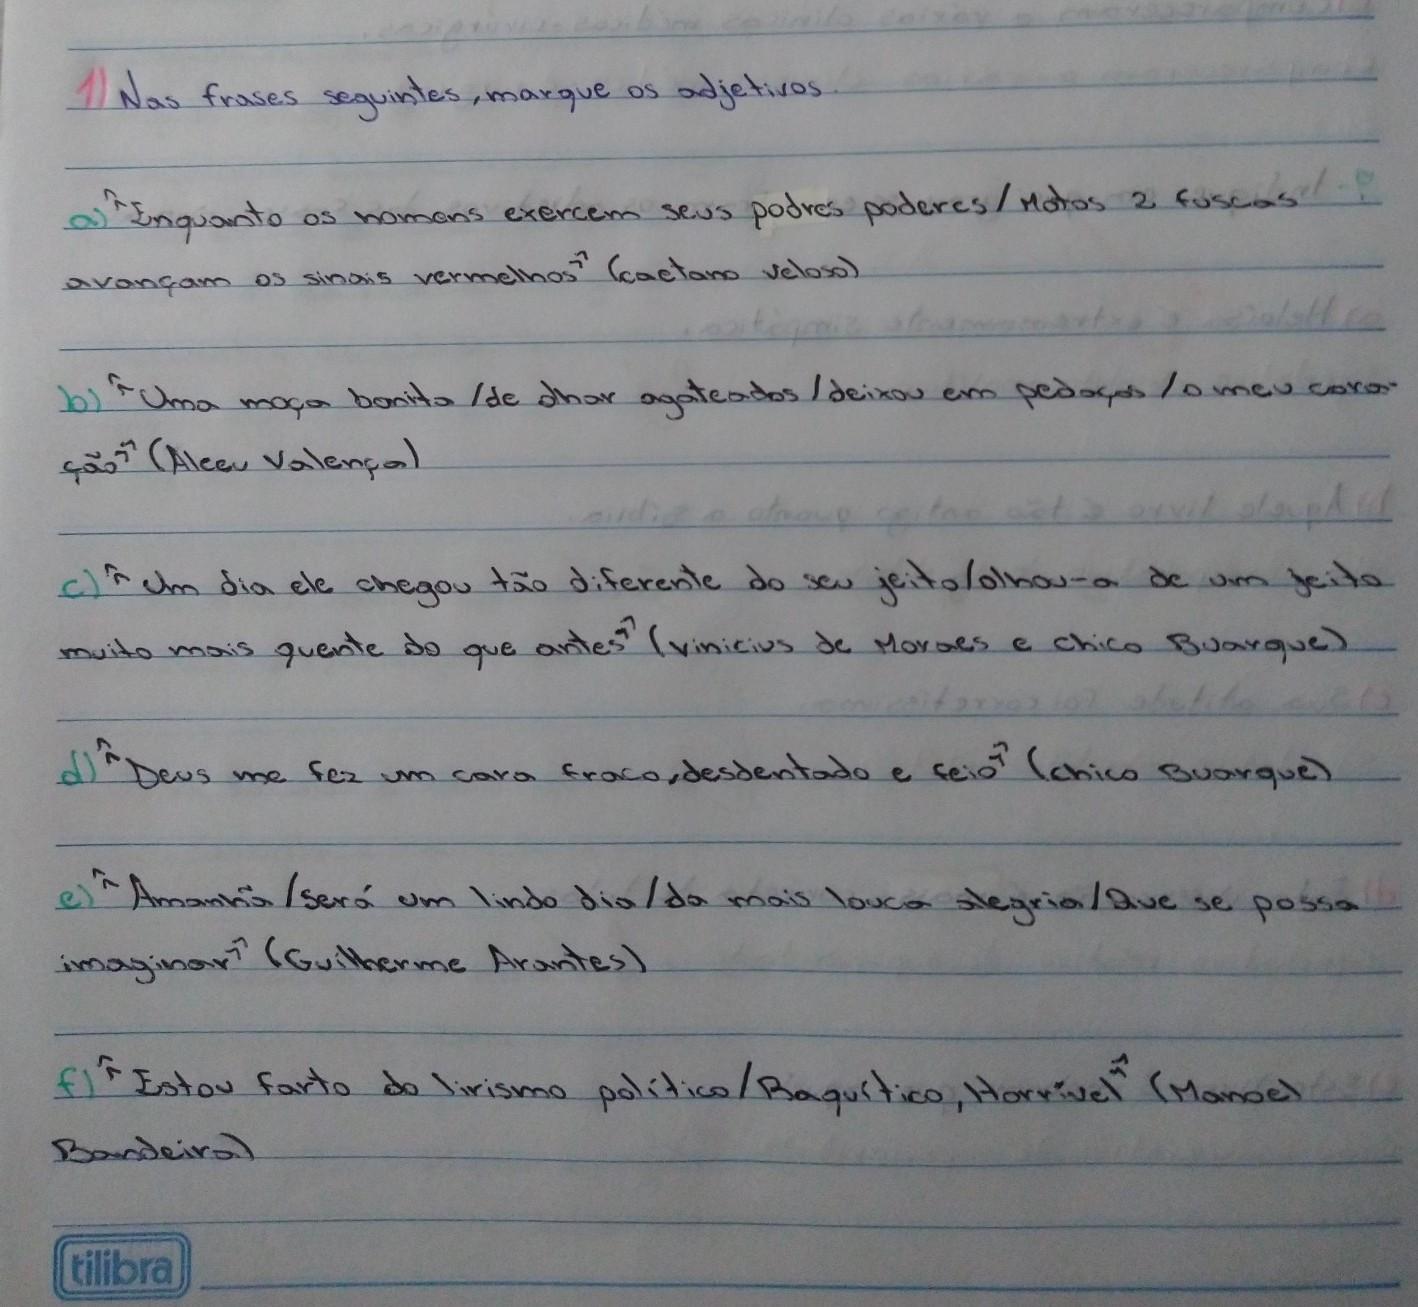 1) Nas frases seguintes, marque os adjetivos.
a) "Enquanto os homens exercem seus podres poderes/Motos 2 fuscas
avançam os sinais vermelhos" (caetano veloso)
b) "Uma moça bonita /de olhar agateados/deixou em pedaços /o meu cora-
ção" (Alceu Valença)
c) "Um dia ele chegou tão diferente do seu jeito/olhou-a de um jeito
muito mais quente do que antes" (vinicius de Moraes e chico Buarque)
d) "Deus me fez um cara fraco, desdentado e feio" (chico Buarque)
e) "Amanhã/será um lindo dia/da mais louca alegria/Que se possa
imaginar" (Guilherme Arantes)
f) "Estou farto do lirismo político/Raquítico, Horrível" (Manoel
Bandeira)
tilibra